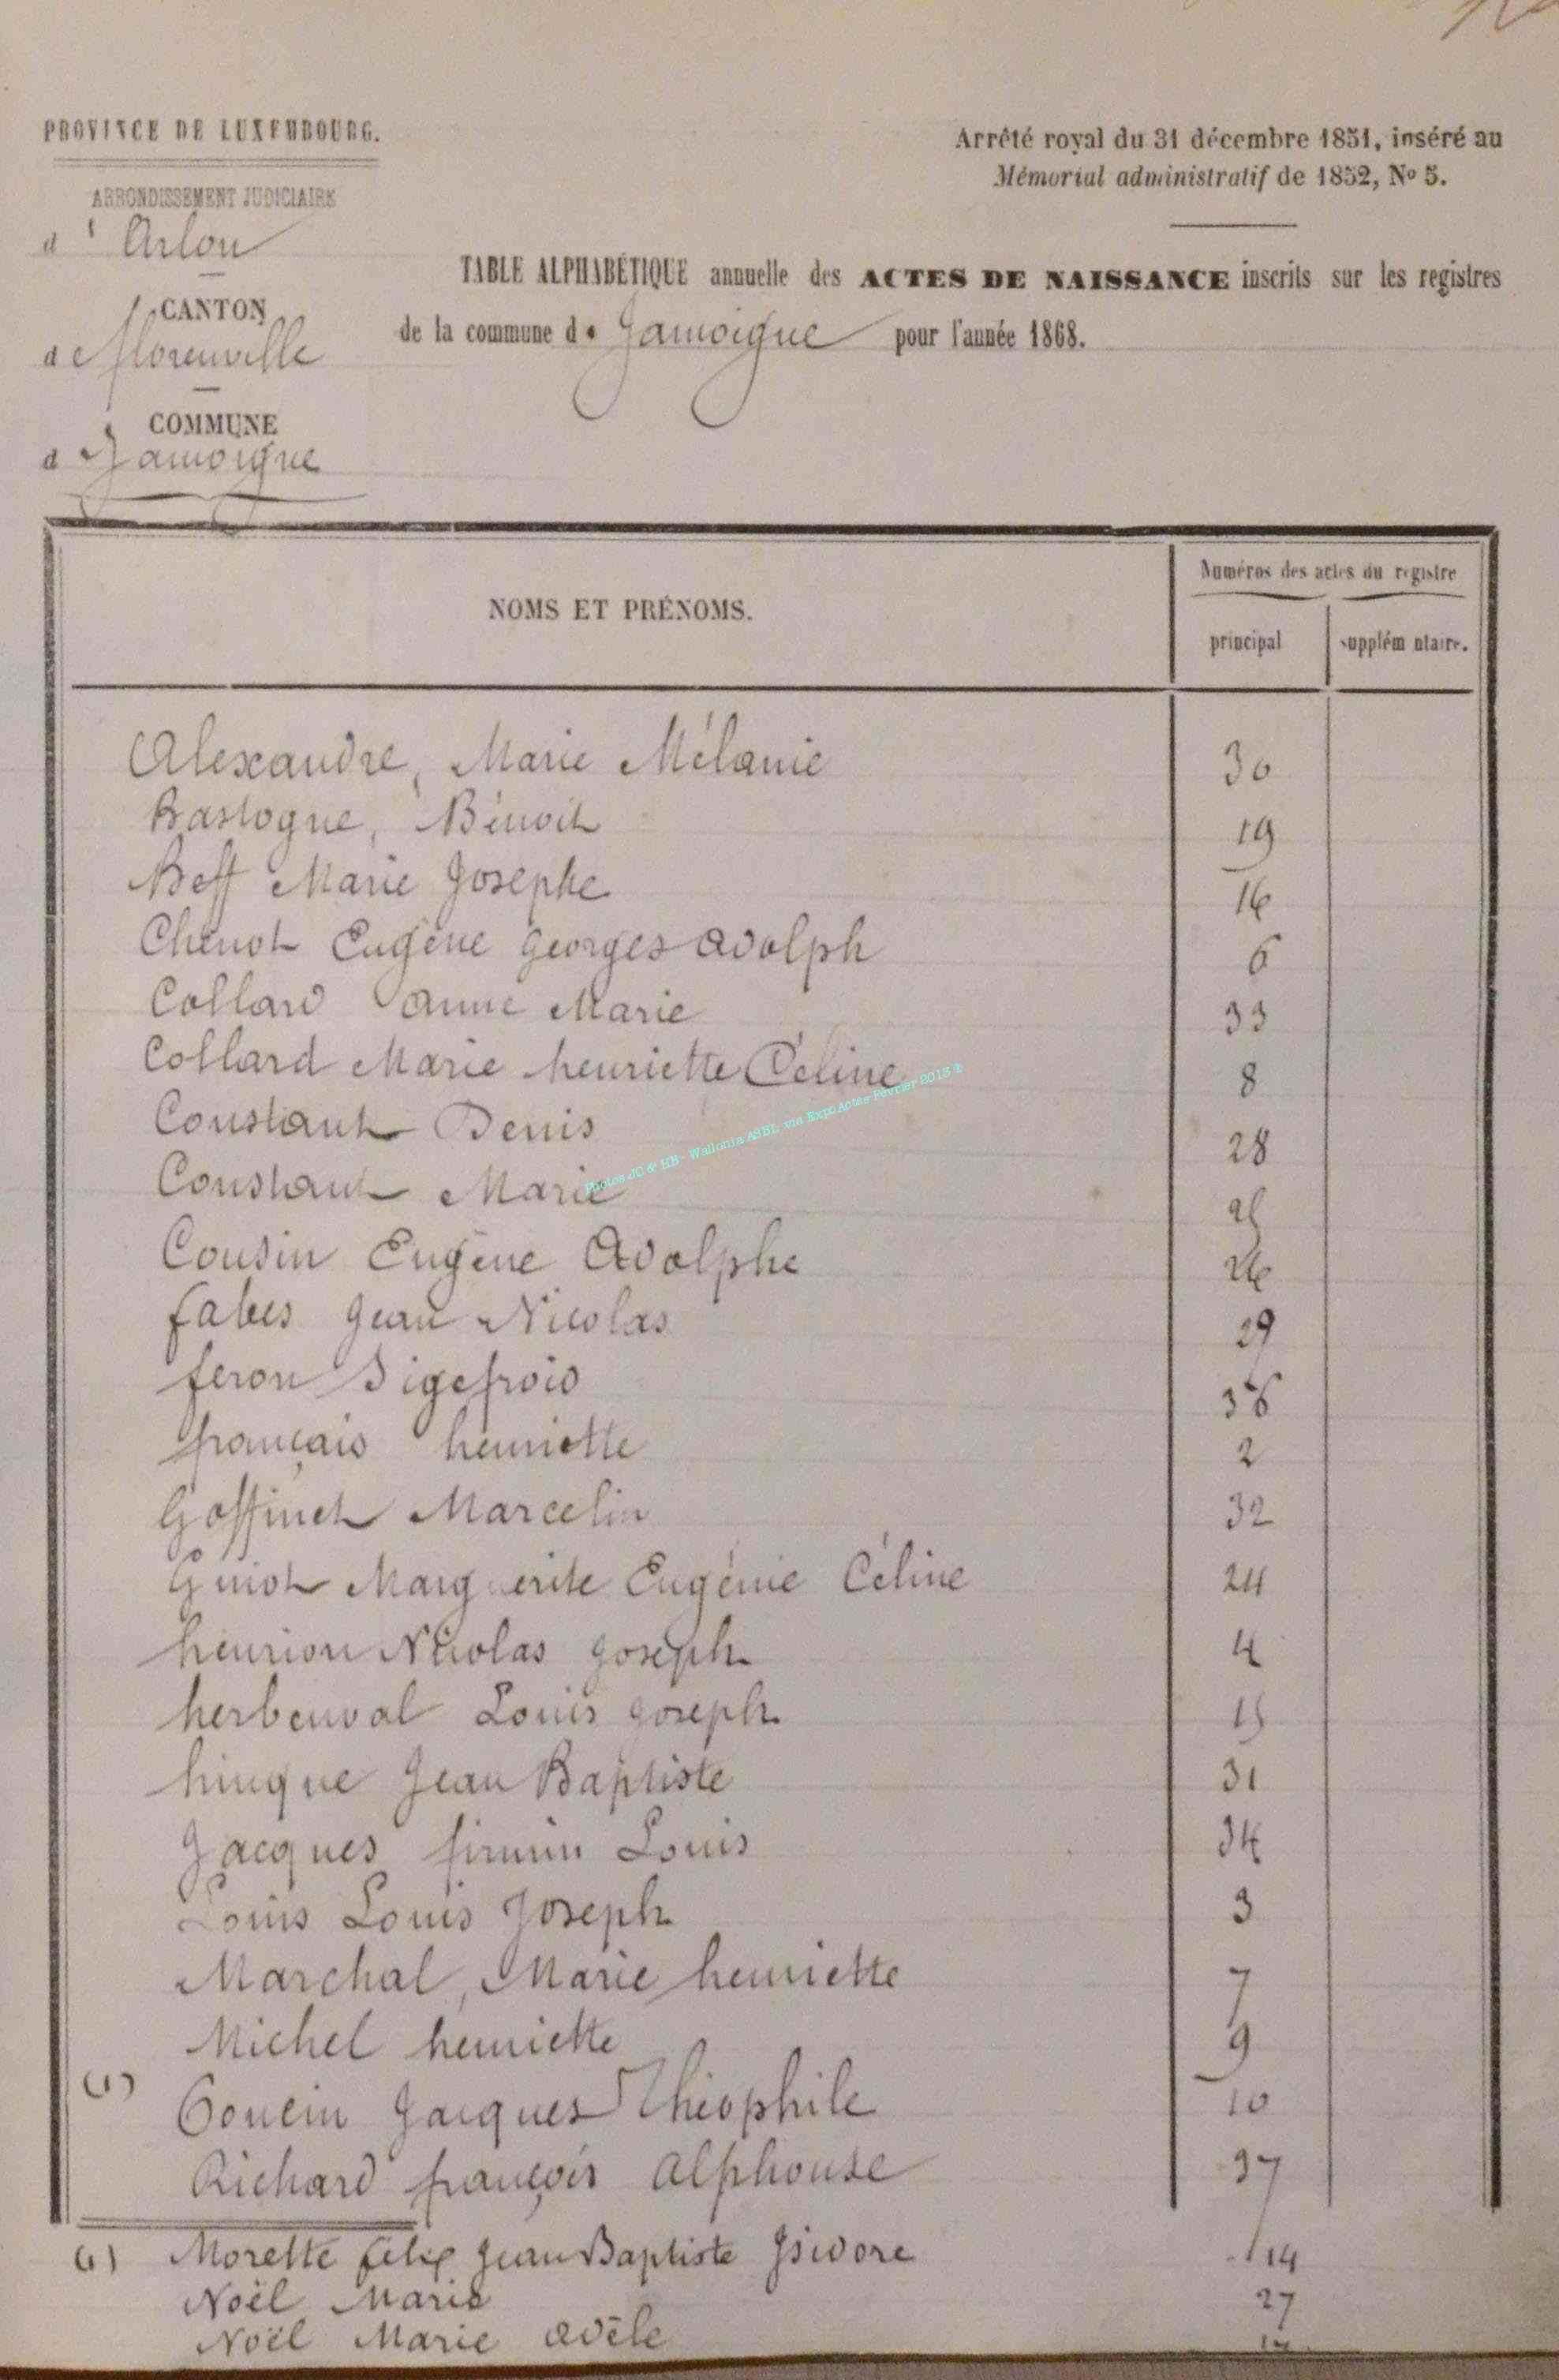 PROVINCE DE LUXEMBOURG.
ARRONDISSEMENT JUDICIAIRE
d' Arlon
CANTON
de Florenville
COMMUNE
d Jamoigne
Arrêté royal du 31 décembre 1851, inséré au
Mémorial administratif de 1852, No 5.
TABLE ALPHABÉTIQUE annuelle des ACTES DE NAISSANCE inscrits sur les registres
de la commune de Jamoigne pour l'année 1868.
NOMS ET PRÉNOMS.
Numéros des actes du registre
principal
supplémentaire.
Alexandre, Marie Mélanie 30
Bastogne, Bénoit 19
Beff Marie Josephe 16
Chenot Eugène georges adolph 6
Collard anne Marie 33
Collard Marie henriette Céline 8
Constant Denis 28
Constant Marie 25
Cousin Eugène Adolphe 26
fabes jean Nicolas 29
feron Sigefroid 36
français henriette 2
Goffinet Marcelin 32
Guiot Marguerite Eugénie Céline 24
henrion Nicolas joseph 4
herbeuval Louis joseph 15
hinque Jean Baptiste 31
Jacques firmin Louis 34
Louis Louis Joseph 3
Marchal, Marie henriette 7
Michel henriette 9
(1) Poncin Jacques Théophile 10
Richard françois alphonse 37
(1) Morette felix Jean Baptiste Isidore 14
Noël Marie 27
Noël Marie adèle
Photos JC & HB - Wallonia ASBL via ExpoActes Février 2013 ®